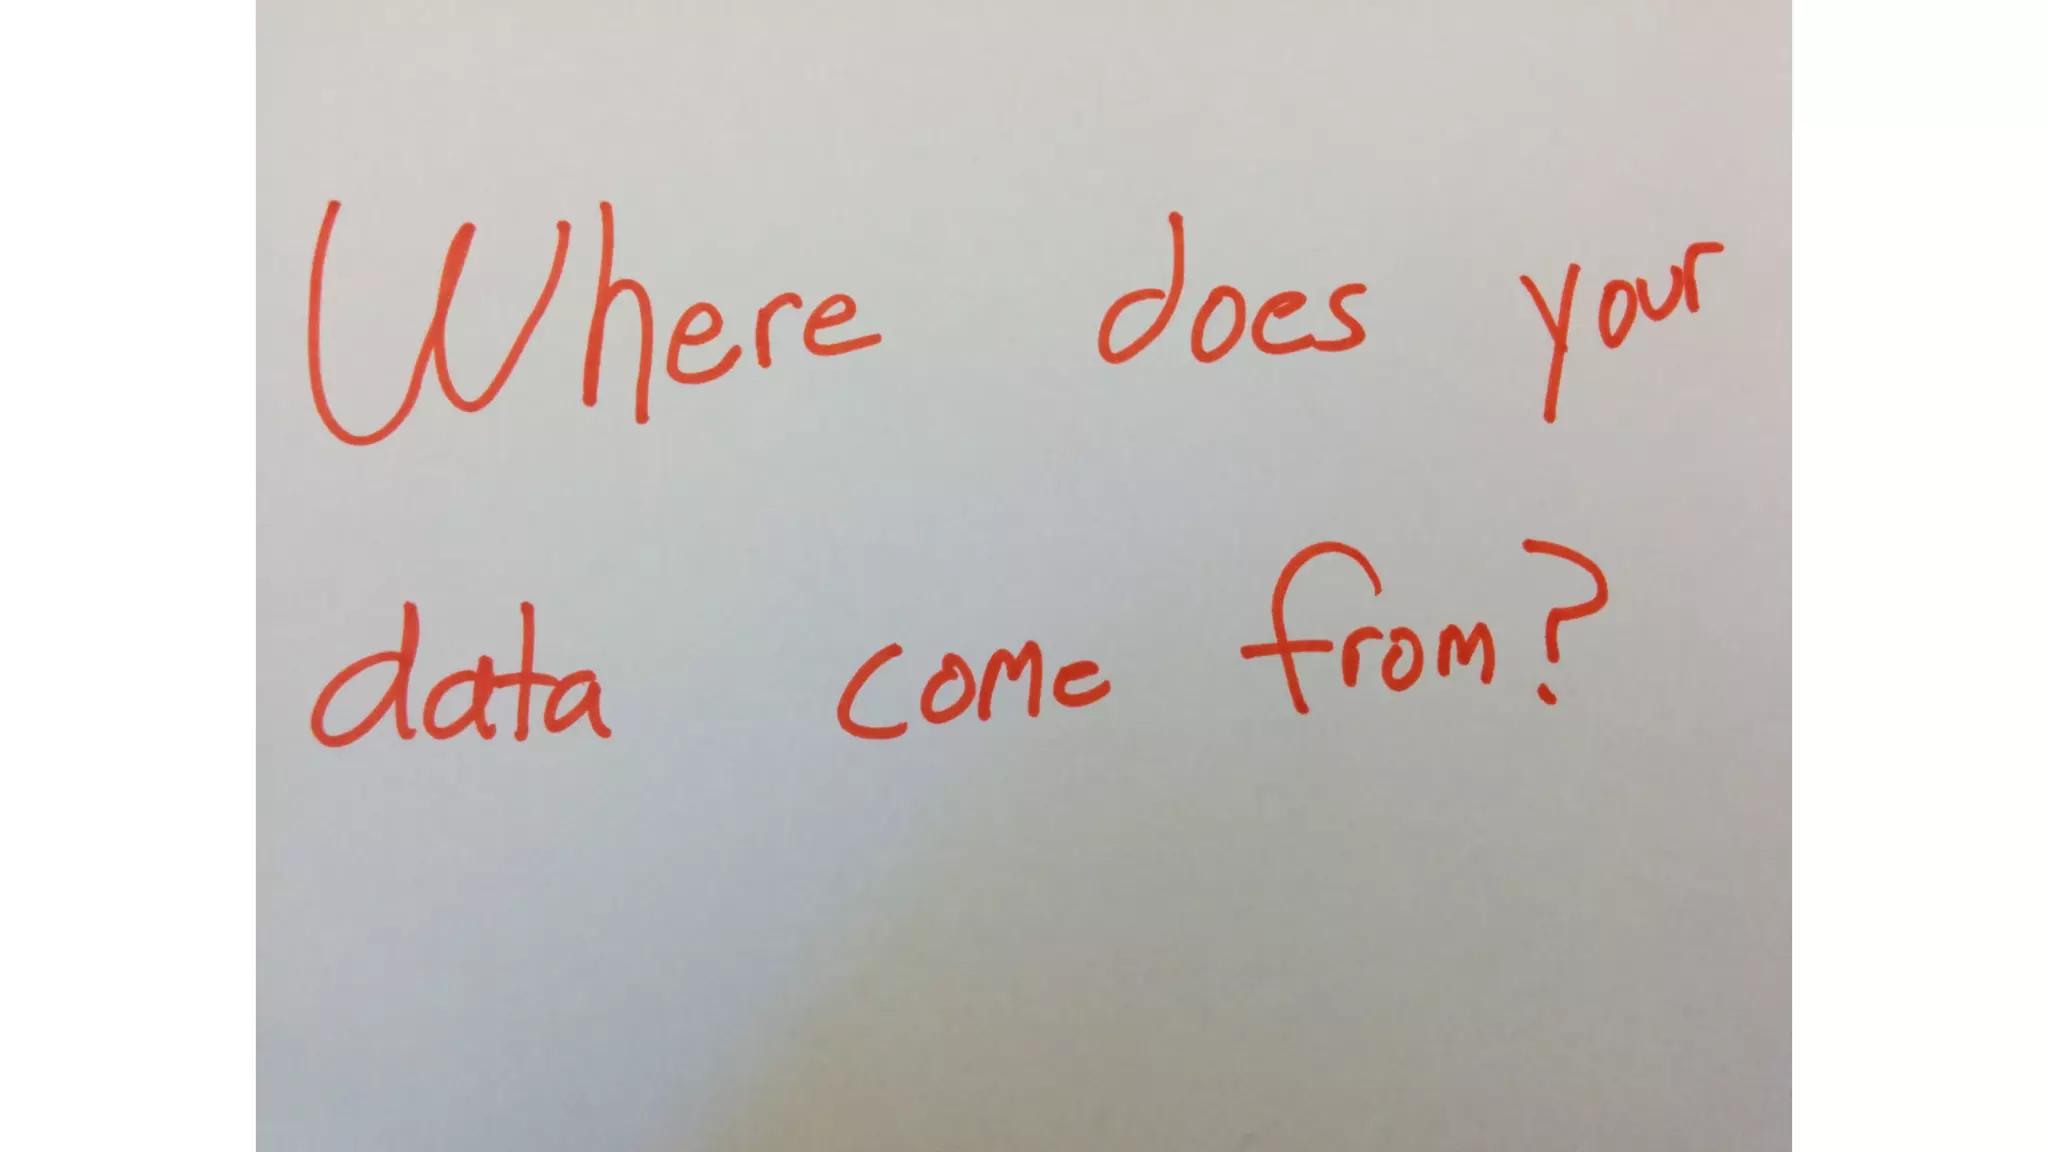 Where does your
data come from?